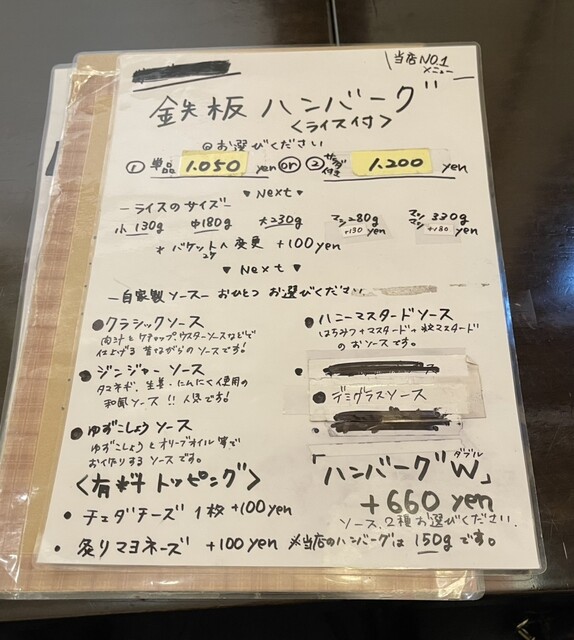 当店NO.1
メニュー
鉄板ハンバーグ
<ライス付>
◎お選びください
① 単品 1.050 yen or ② サラダ付き 1.200 yen
▼ Next ▼
ーライスのサイズー
小130g 中180g 大230g マシ280g +130 yen マシマシ330g +180 yen
* バケット2ケへ変更 +100yen
▼ Next ▼
ー自家製ソースー おひとつ お選びください
●クラシックソース
肉汁とケチャップ、ウスターソースなどで
仕上げる 昔ながらのソースです!
●ジンジャーソース
タマネギ、生姜・にんにく使用の
和風ソース!! 人気です!
●ゆずこしょうソース
ゆずこしょうとオリーブオイル等で
お作りするソースです。
●ハニーマスタードソース
はちみつ+マスタード+粒マスタード
のおソースです。
●デミグラスソース
<有料トッピング>
・チェダチーズ 1枚+100yen
・炙りマヨネーズ +100yen
「ハンバーグWダブル」
+660yen
ソース、2種お選びください。
※当店のハンバーグは150gです。